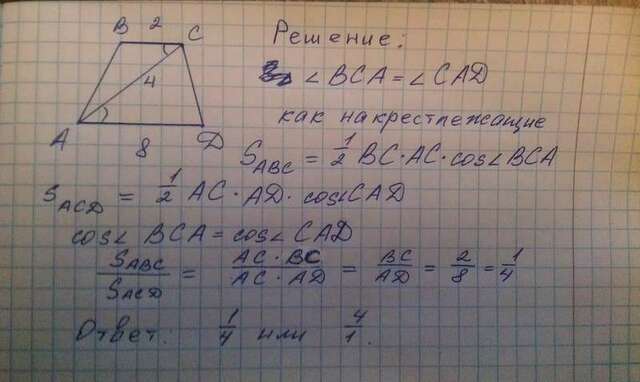 B 2 C
4
A 8 D
Решение:
∠ BCA = ∠ CAD
как накрестлежащие
S_ABC = 1/2 BC · AC · cos∠BCA
S_ACD = 1/2 AC · AD · cos∠CAD
cos∠ BCA = cos∠ CAD
S_ABC/S_ACD = AC · BC/AC · AD = BC/AD = 2/8 = 1/4
Ответ: 1/4 или 4/1.